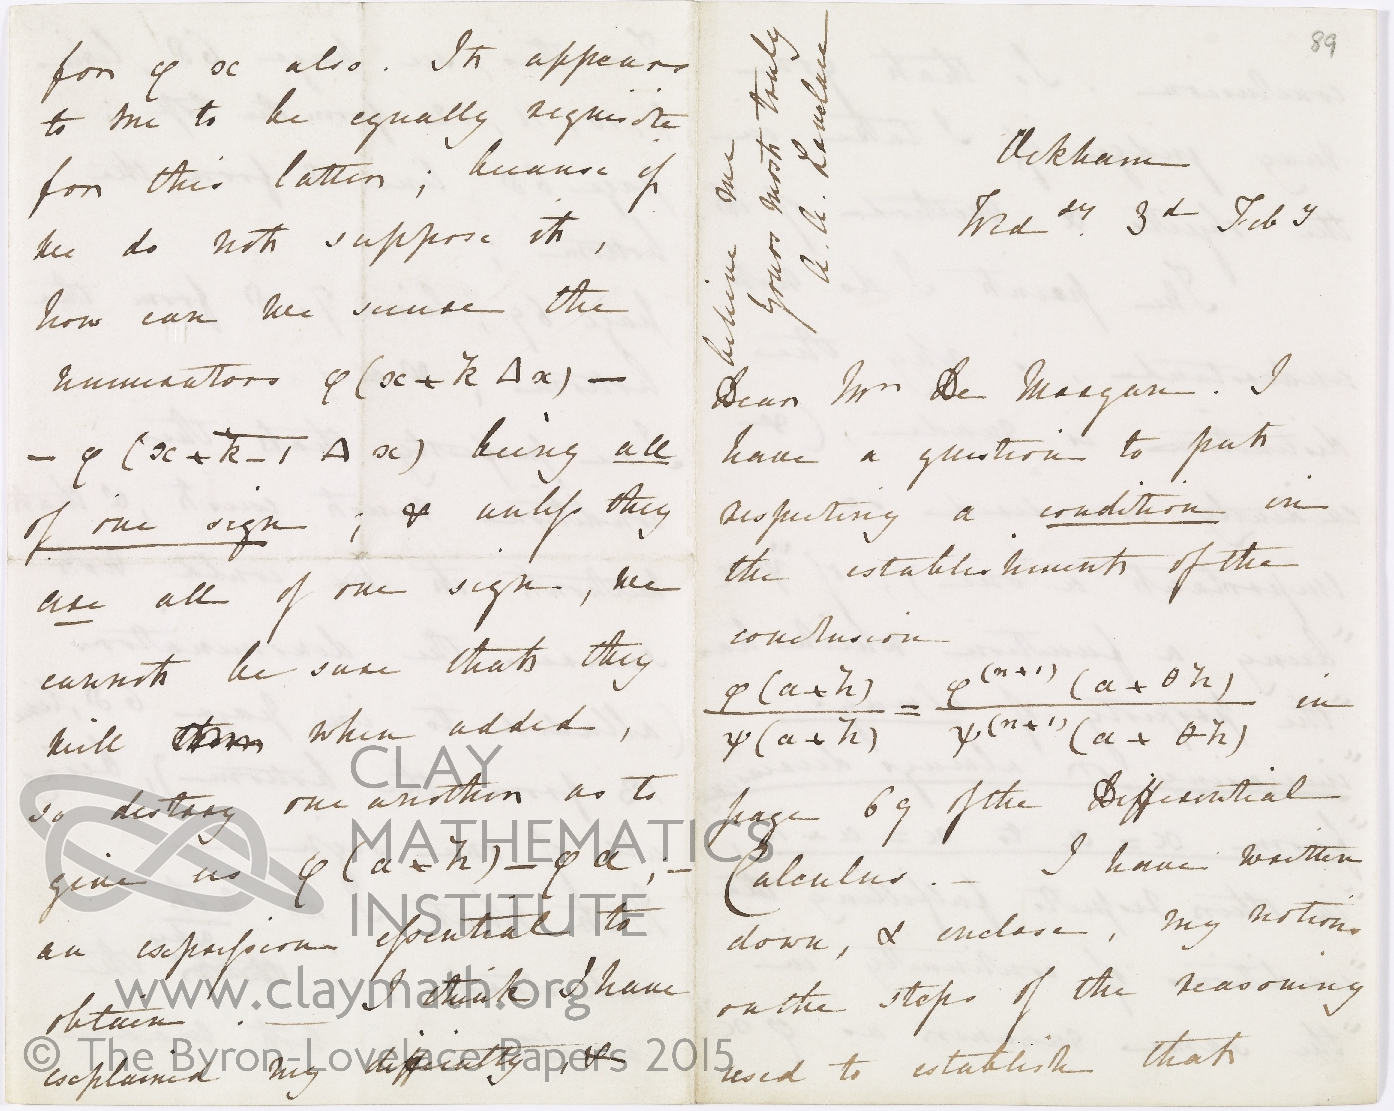 for φ x also. It appears
to me to be equally requisite
for this latter; because if
we do not suppose it,
how can we secure the
numerators φ(x + k Δx) –
– φ(x + k–1 Δx) being all
of one sign; & unless they
are all of one sign, we
cannot be sure that they
will when added,
so destroy one another as to
give us φ(a+h) – φa; –
an expression essential to
obtain. – I think I have
explained my difficulty, &
believe me
Yours most truly
A. A. Lovelace
89
Ockham
Wed^dy. 3^d Feb^y
Dear Mr De Morgan. I
have a question to put
respecting a condition in
the establishment of the
conclusion
φ(a+h)/ψ(a+h) = φ^(n+1)(a+θh)/ψ^(n+1)(a+θh) in
page 69 of the Differential
Calculus. – I have written
down, & enclose, my notions
on the steps of the reasoning
used to establish that
CLAY
MATHEMATICS
INSTITUTE
www.claymath.org
© The Byron-Lovelace Papers 2015